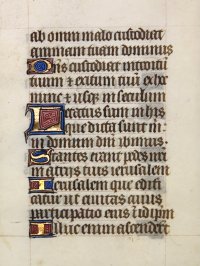 ab omni malo custodiat
animam tuam dominus
Dns custodiat introitū
tuum et exitum tuū ex hoc
nunc et usq; in seculum
Letatus sum in hijs
que dicta sunt m
in domum dni ibimus
Stantes erant pedes nri
in atrijs tuis ierusalem
Ierusalem que edifi
catur ut ciuitas cuius
participatio eius in idipm
Illuc enim ascenderūt